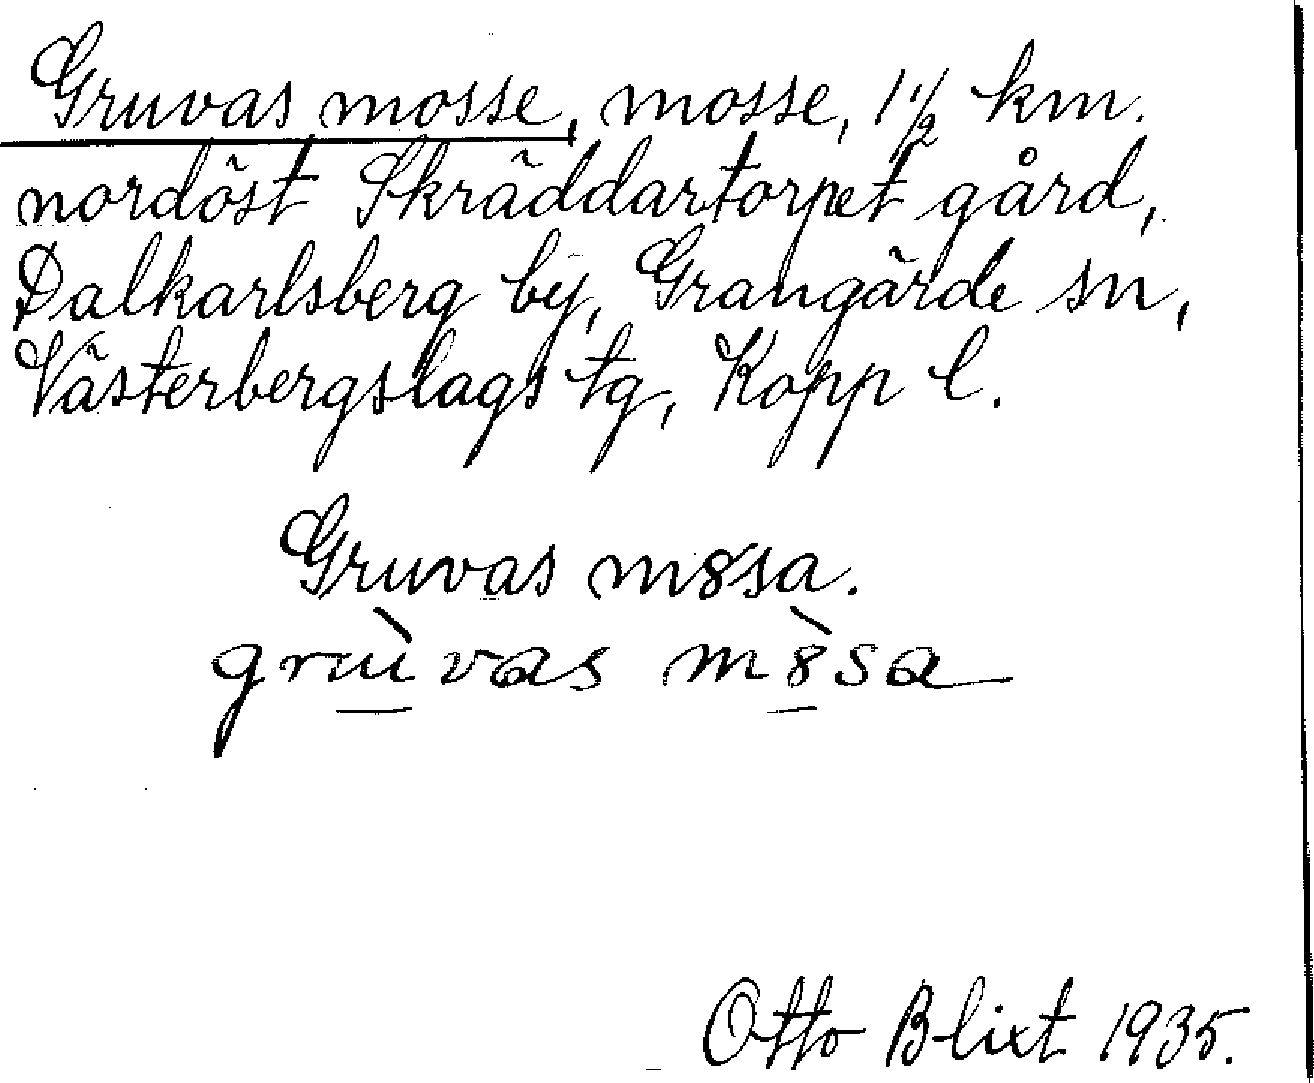 Gruvas mosse, mosse, 1 1/2 km.
nordöst Skräddartorpet gård,
Dalkarlsberg by, Grangärde sn,
Västerbergslags tg, Kopp l.
Gruvas m8sa.
grùvas m8̀sa
Otto Blixt 1935.